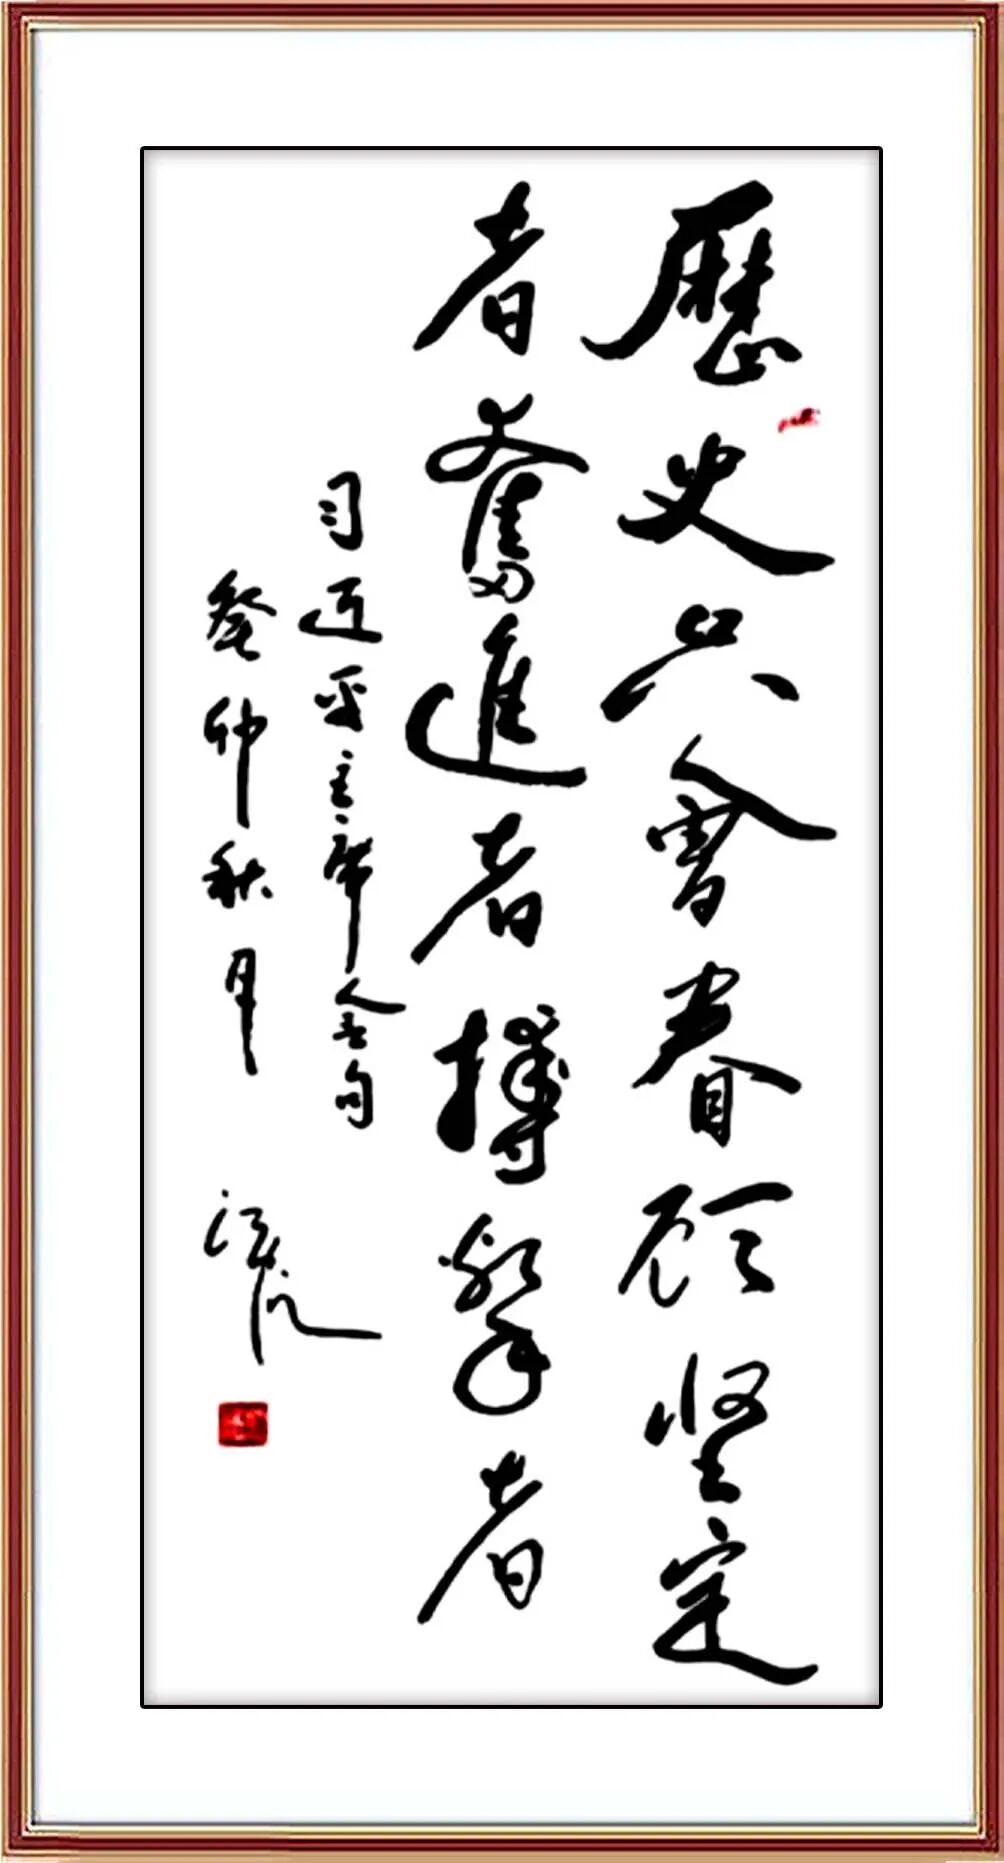 歷史只會眷顾坚定
者奮進者搏擊者
习近平主席金句
癸卯秋月